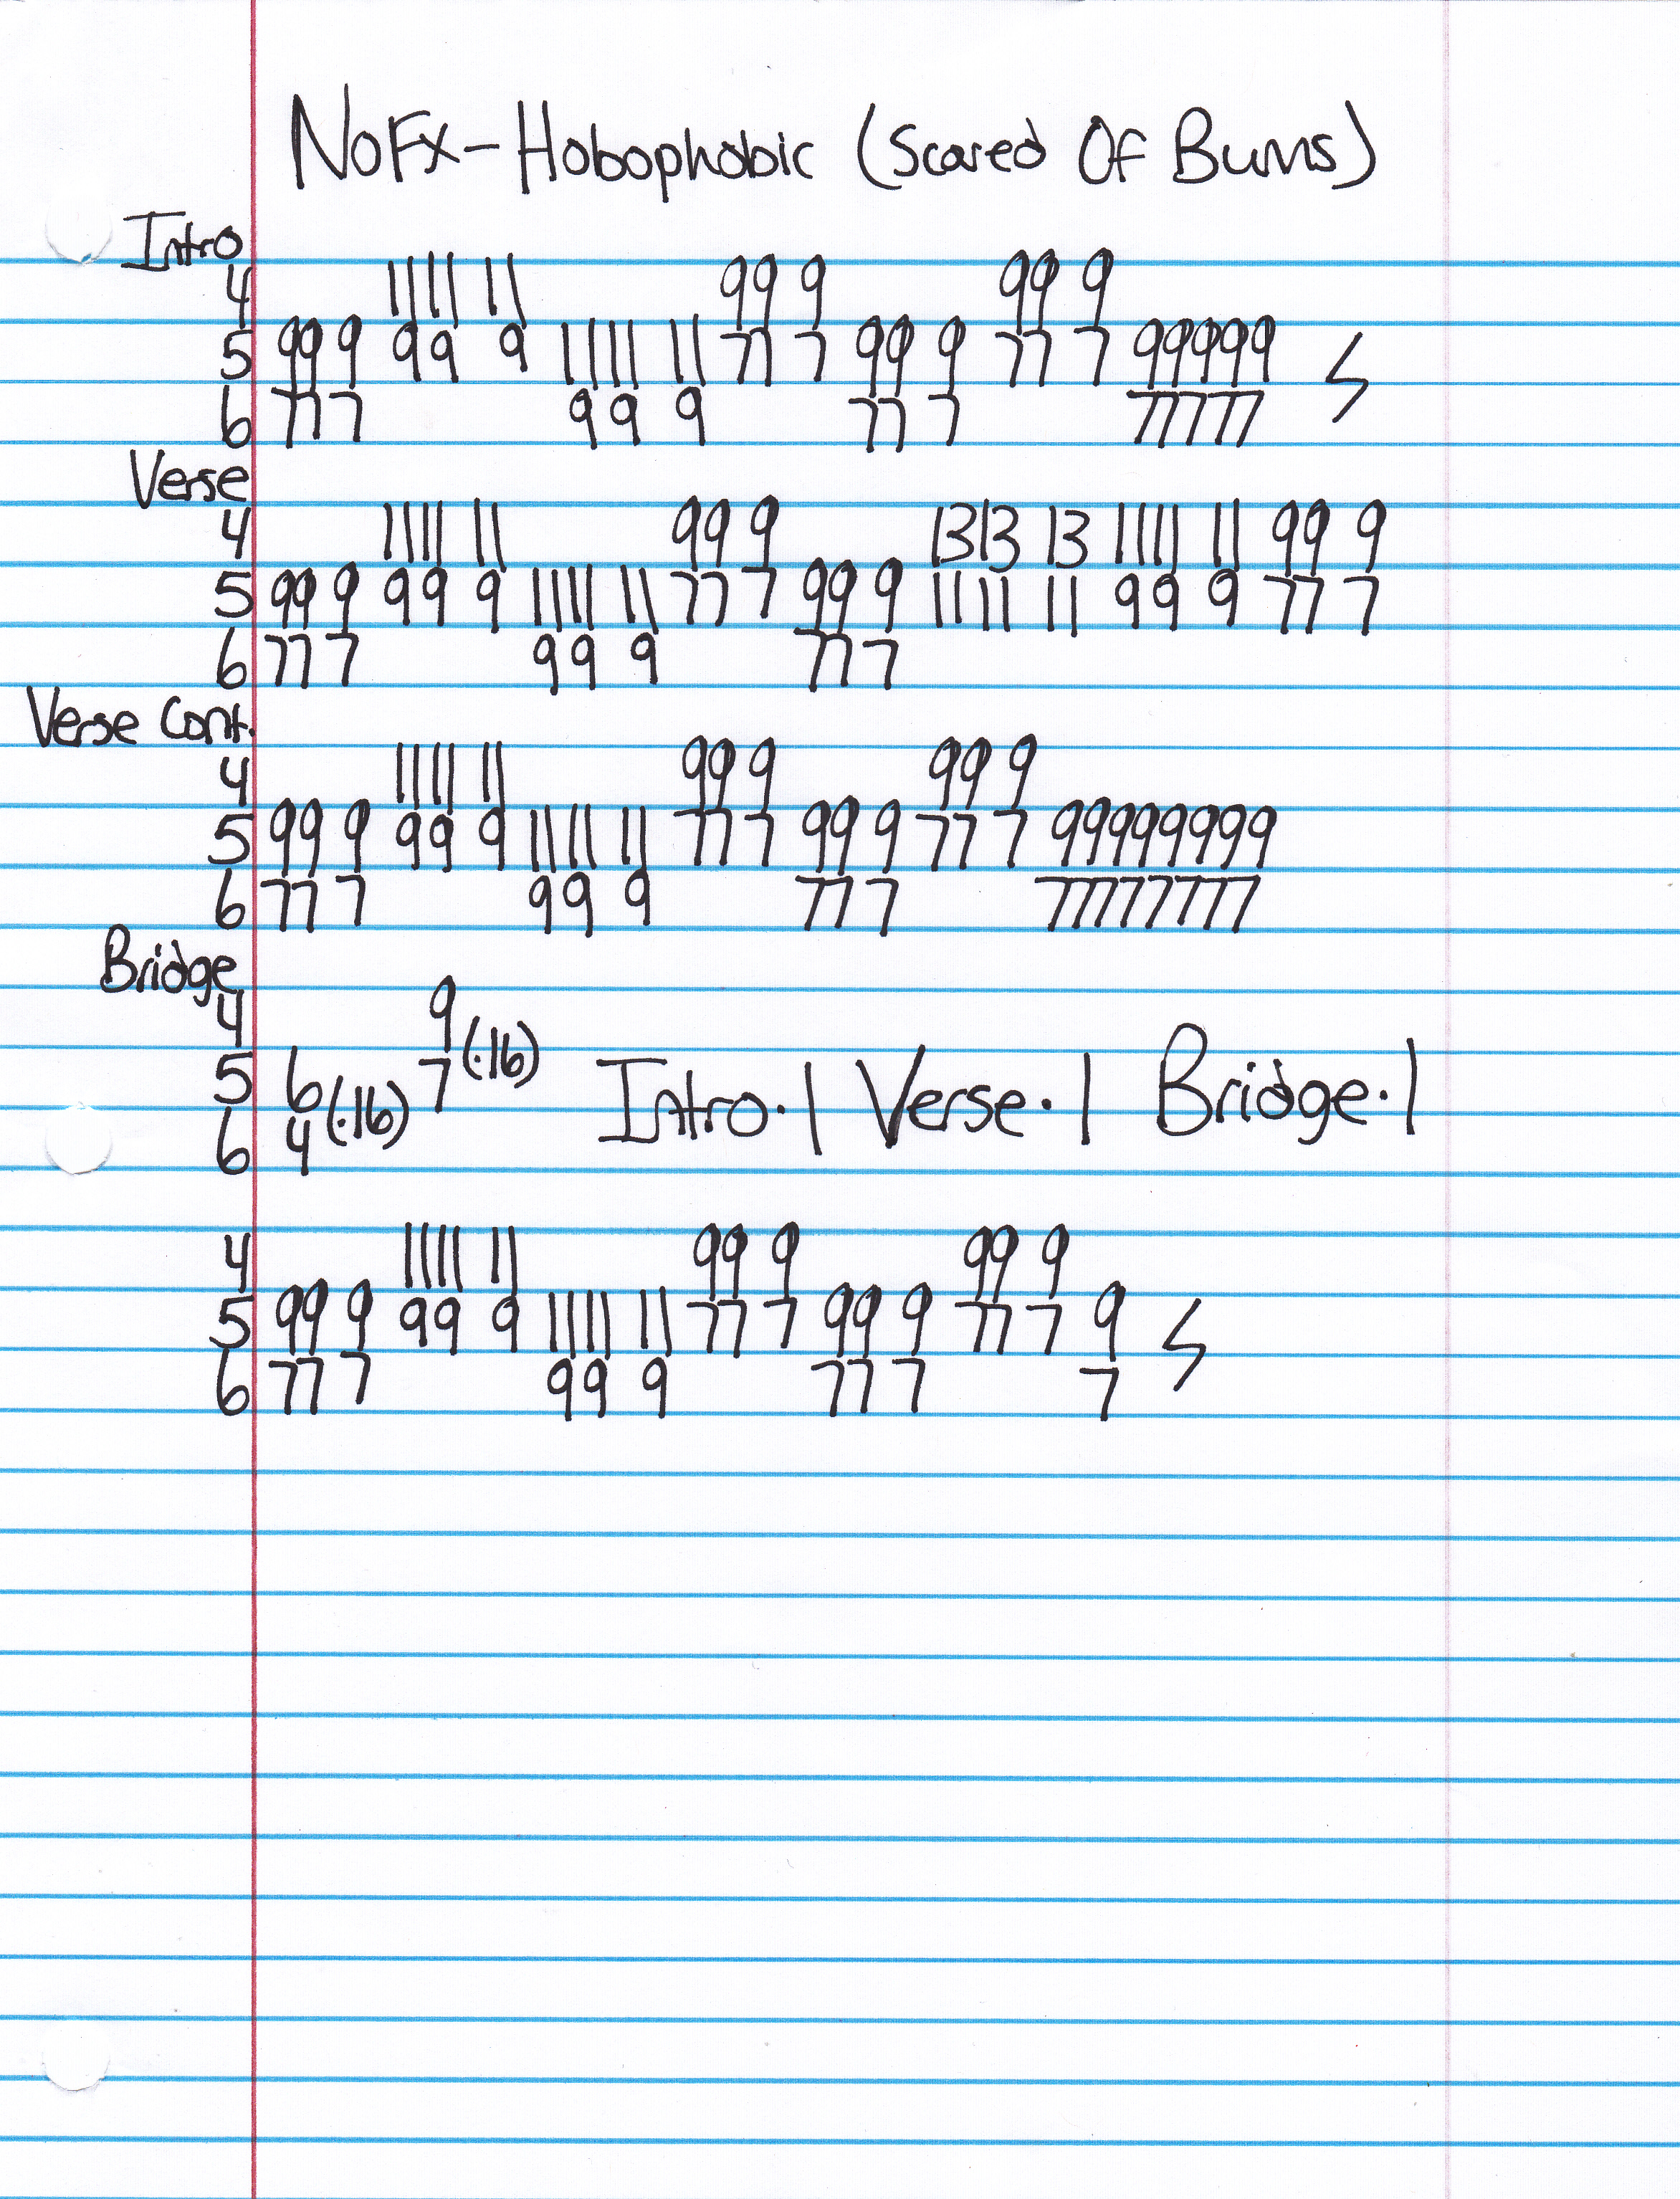 NoFX - Hobophobic (Scared Of Bums)
Intro
4 11 11 11 99 9 99 9
5 99 9 99 9 11 11 11 77 7 99 9 77 7 99999
6 77 7 99 9 77 7 77777
Verse
4 11 11 11 99 9 13 13 13 11 11 11 99 9
5 99 9 99 9 11 11 11 77 7 99 9 11 11 11 99 9 77 7
6 77 7 99 9 77 7
Verse Cont.
4 11 11 11 99 9 99 9
5 99 9 99 9 11 11 11 77 7 99 9 77 7 99999999
6 77 7 99 9 77 7 77777777
Bridge
4 9
5 6 7 (·16) Intro·1 Verse·1 Bridge·1
6 4 (·16)
4 11 11 11 99 9 99 9
5 99 9 99 9 11 11 11 77 7 99 9 77 7 9
6 77 7 99 9 77 7 7